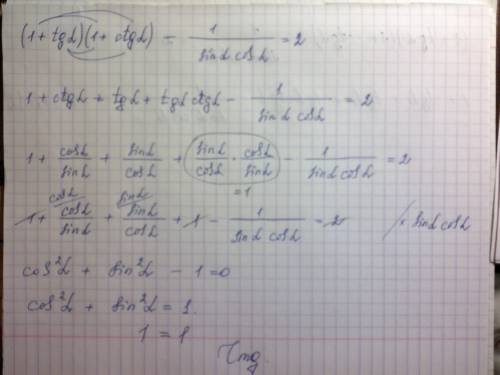 (1 + tg α)(1 + ctg α) − 1/(sin α cos α) = 2
1 + ctg α + tg α + tg α ctg α − 1/(sin α cos α) = 2
1 + cos α/sin α + sin α/cos α + sin α/cos α · cos α/sin α − 1/(sin α cos α) = 2
= 1
cos α sin α
1 + cos α/sin α + sin α/cos α + 1 − 1/(sin α cos α) = 2 / × sin α cos α
cos²α + sin²α − 1 = 0
cos²α + sin²α = 1.
1 = 1